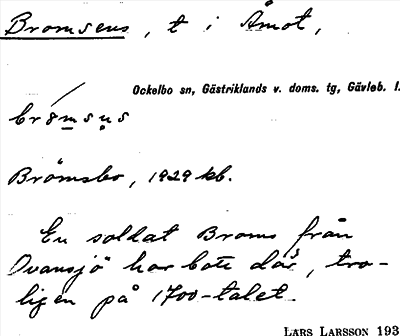 Bromsens, t i Åmot,
Ockelbo sn, Gästriklands v. doms. tg, Gävleb. l.
Brömsbo, 1929 kb.
En soldat Broms från
Ovansjö har bott där, tro-
ligen på 1700-talet.
LARS LARSSON 193